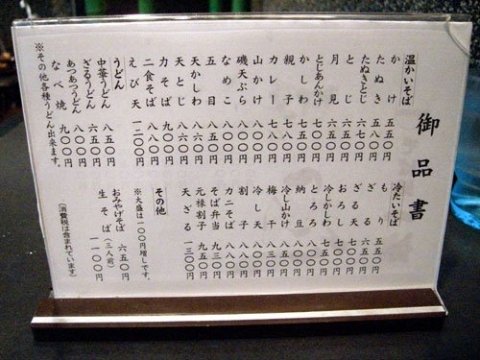 御品書
温かいそば
かけ 五五〇円
たぬき 五八〇円
たぬきとじ 六五〇円
とじ 六五〇円
月見 六五〇円
とじあんかけ 七五〇円
かしわ 七五〇円
親子 七八〇円
カレー 七八〇円
山かけ 八〇〇円
磯天ぷら 八〇〇円
なめこ 八〇〇円
五目 八五〇円
天かしわ 八五〇円
天とじ 八八〇円
力そば
二食そば 八八〇円
えび天 一二〇〇円
うどん
中華うどん 八五〇円
ざるうどん 六五〇円
あつあつうどん 八五〇円
なべ焼 九〇〇円
※その他各種うどん出来ます。
冷たいそば
もり 五五〇円
ざる 六五〇円
ざる天
おろし 七五〇円
冷しかしわ
とろろ
納豆 八〇〇円
冷し山かけ
梅干
冷し天
割子 八〇〇円
カニそば
そば弁当 九三〇円
元禄割子 九五〇円
天ざる 一三〇〇円
※大盛は一〇〇円増しです。
その他
おみやげそば 六五〇円
生そば(三人前) 一一〇〇円
(消費税は含まれています)